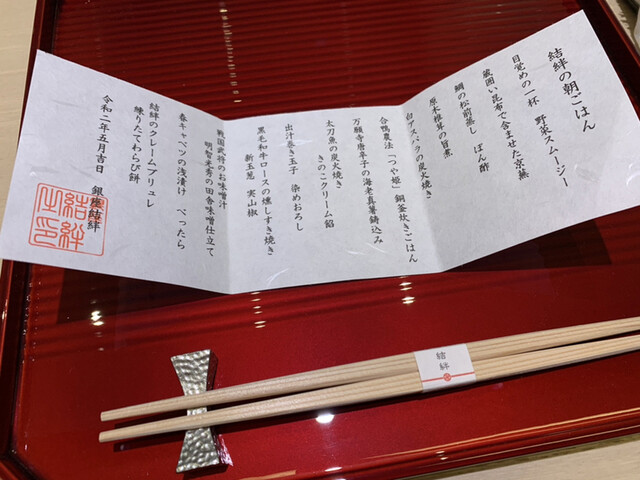 結絆の朝ごはん
目覚めの一杯 野菜スムージー
蔵囲い昆布で含ませた京蕪
鯛の松前蒸し ぽん酢
原木椎茸の旨煮
白アスパラの炭火焼き
合鴨農法「つや姫」銅釜炊きごはん
万願寺唐辛子の海老真薯鋳込み
太刀魚の炭火焼き
きのこクリーム餡
出汁巻き玉子 染めおろし
黒毛和牛ロースの燻しすき焼き
新玉葱 実山椒
戦国武将のお味噌汁
明智光秀の田舎味噌仕立て
春キャベツの浅漬け べったら
結絆のクレームブリュレ
練りたてわらび餅
令和二年五月吉日 銀座結絆
結絆